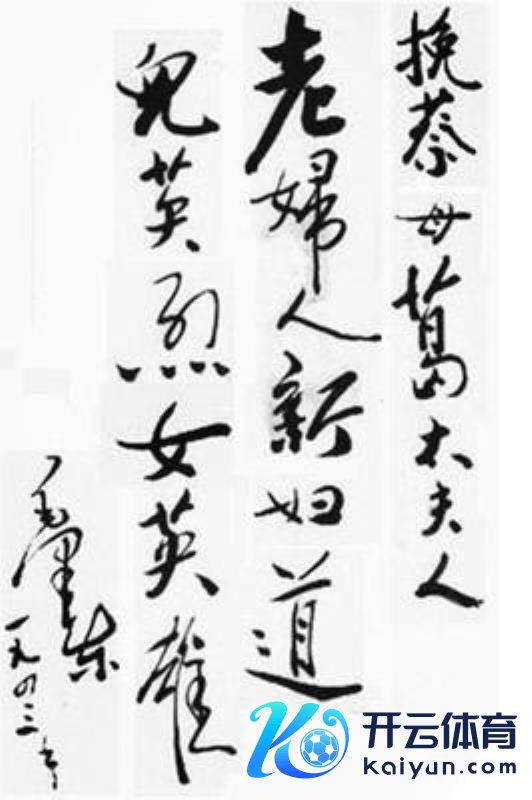 挽蔡母葛太夫人
老婦人新妇道
兒英烈女英雄
毛澤东
一九四三年
开云体育
kaiyun.com